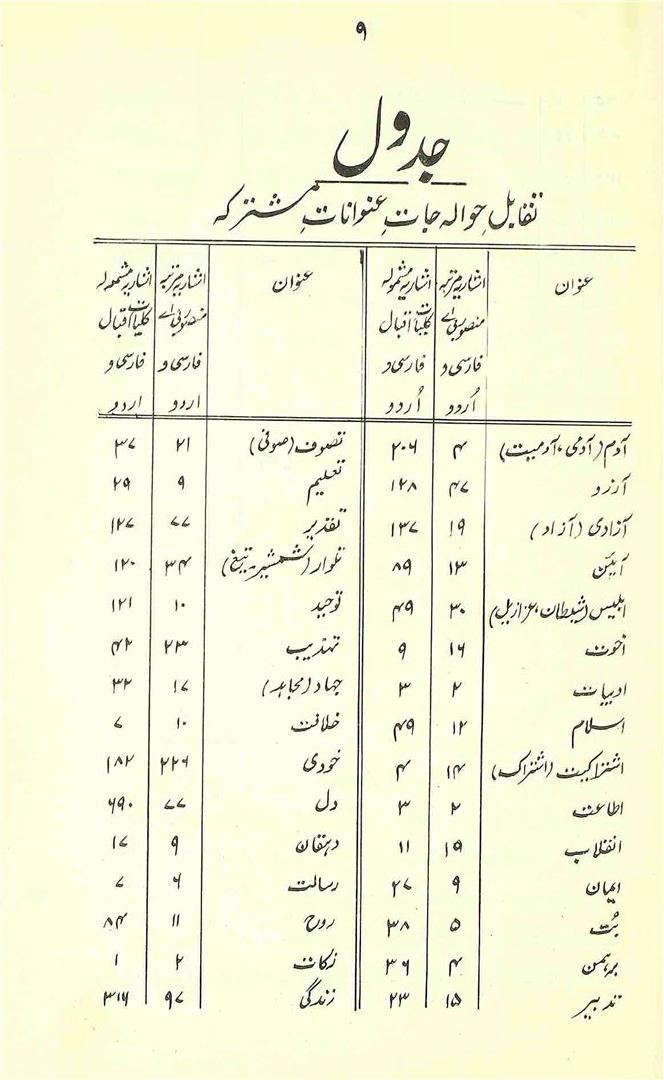 ۹
جدول
تقابلِ حوالہ جات، عنواناتِ مشترکہ
عنوان | اشاریہ مرتبہ منصور بی اے فارسی و اُردو | اشاریہ مشمولہ کلیات اقبال فارسی و اُردو | عنوان | اشاریہ مرتبہ منصور بی اے فارسی و اردو | اشاریہ مشمولہ کلیات اقبال فارسی و اردو
آدم (آدمی، آدمیت) | ۴ | ۲۰۶ | تصوف (صوفی) | ۲۱ | ۳۷
آرزو | ۴۷ | ۱۲۸ | تعلیم | ۹ | ۲۹
آزادی (آزاد) | ۱۹ | ۱۳۷ | تقدیر | ۷۷ | ۱۲۷
آئین | ۱۳ | ۸۹ | تلوار (شمشیر۔ تیغ) | ۳۴ | ۱۲۰
ابلیس (شیطان، عزازیل) | ۳۰ | ۴۹ | توحید | ۱۰ | ۱۲۱
اخوت | ۱۶ | ۹ | تہذیب | ۲۳ | ۴۲
ادبیات | ۲ | ۳ | جہاد (مجاہد) | ۱۷ | ۳۲
اسلام | ۱۲ | ۴۹ | خلافت | ۱۰ | ۷
اشتراکیت (اشتراک) | ۱۴ | ۴ | خودی | ۲۲۶ | ۱۸۲
اطاعت | ۲ | ۳ | دل | ۷۷ | ۶۹۰
انقلاب | ۱۹ | ۱۱ | دہقان | ۹ | ۱۷
ایمان | ۹ | ۲۷ | رسالت | ۶ | ۷
بُت | ۵ | ۳۸ | روح | ۱۱ | ۸۴
برہمن | ۴ | ۳۶ | زکات | ۲ | ۱
تدبیر | ۱۵ | ۲۳ | زندگی | ۹۷ | ۳۱۶